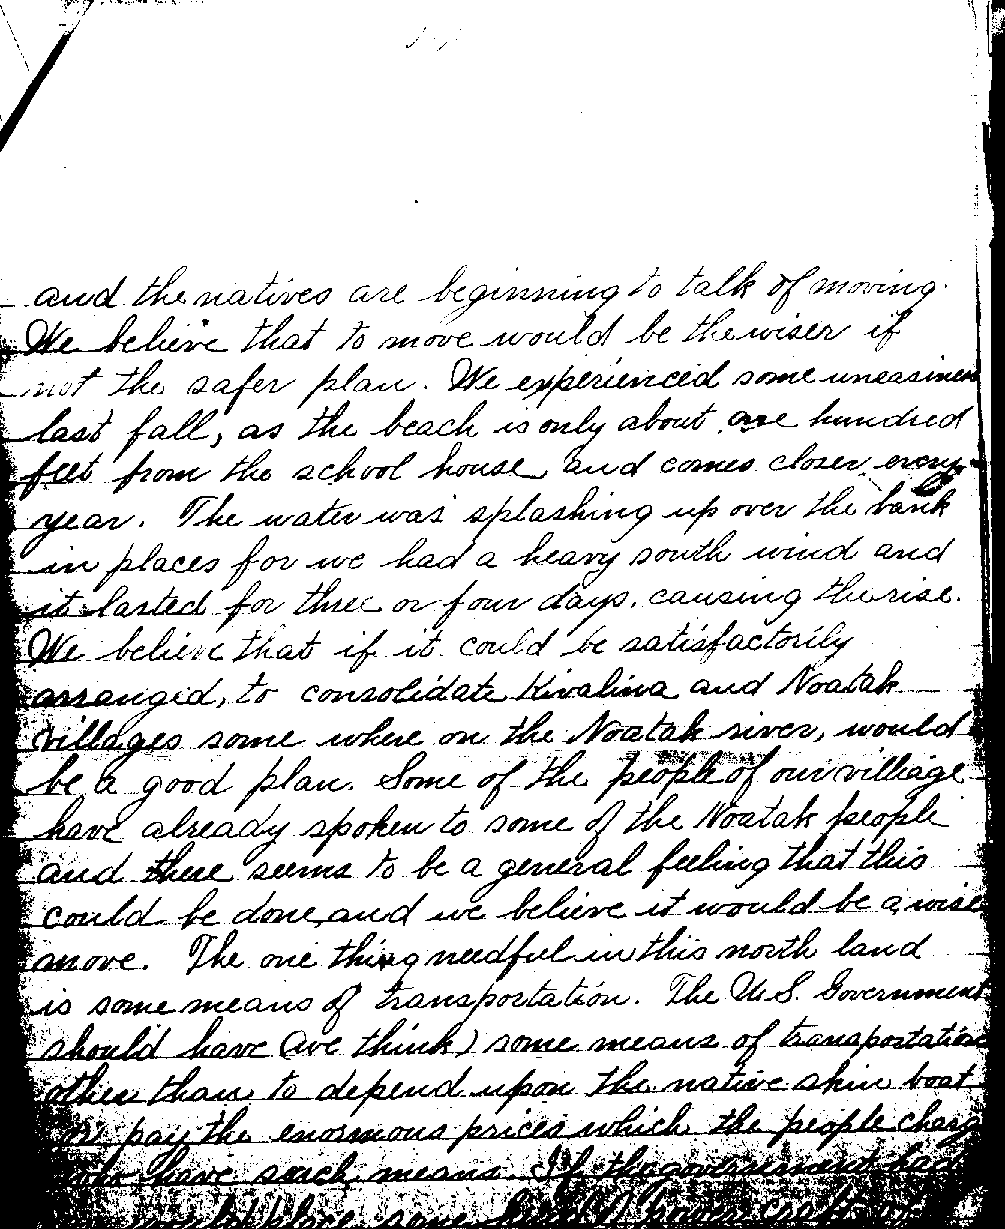 and the natives are beginning to talk of moving.
We believe that to move would be the wiser if
not the safer plan. We experienced some uneasiness
last fall, as the beach is only about one hundred
feet from the school house and comes closer every
year. The water was splashing up over the bank
in places for we had a heavy south wind and
it lasted for three or four days. causing the rise.
We believe that if it could be satisfactorily
arranged, to consolidate Kivalina and Noatak
villages some where on the Noatak river, would
be a good plan. Some of the people of our villiage
have already spoken to some of the Noatak people
and there seems to be a general feeling that this
could be done, and we believe it would be a wise
move. The one thing needful in this north land
is some means of transportation. The U.S. Government
should have (we think) some means of transportation
other than to depend upon the native skin boat
or pay the enormous prices which the people charge
who have such means. If the government had
would place some kind of power craft